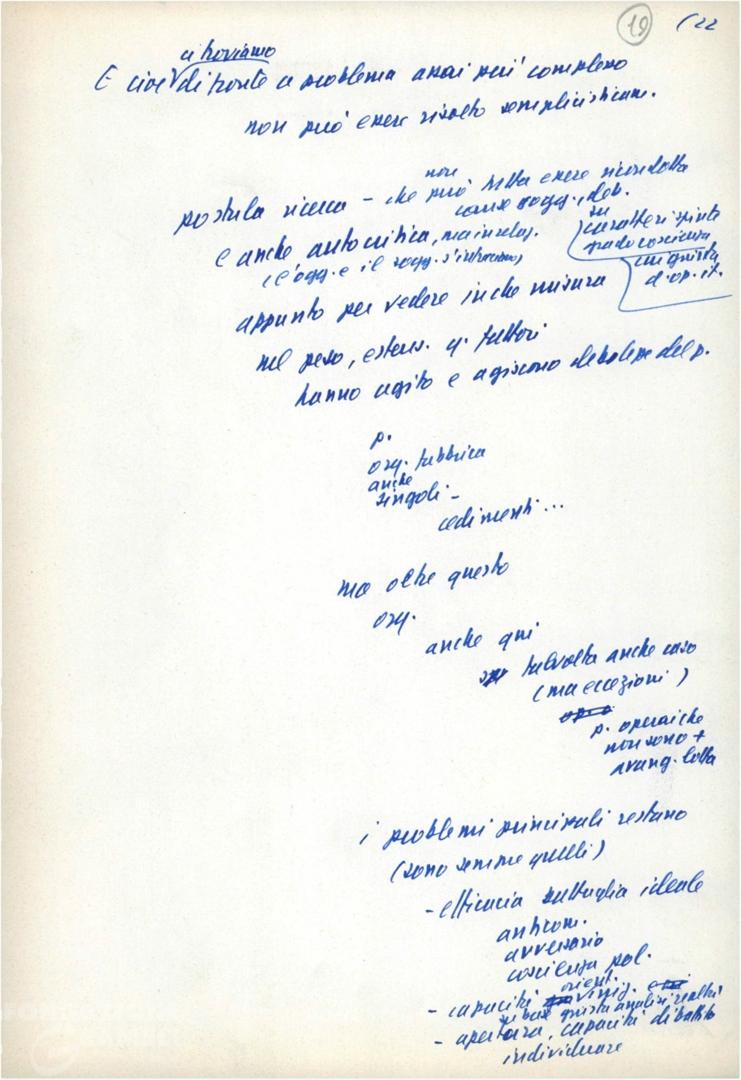 19 (22
ci troviamo
E cioè di fronte a problema assai più complesso
non può essere risolto semplicisticam.
postula ricerca - che non può tutta essere ricondotta
cause sogg., deb.
e anche autocritica, ma in relaz. su caratteri spinta
(l'ogg. e il sogg. s'intrecciano) grado coscienza
appunto per vedere in che misura conquista
d. op. it.
nel peso, estens. q. fattori
hanno agito e agiscono debolezze del p.
p.
org. fabbrica
anche
singoli -
cedimenti...
ma oltre questo
org.
anche qui
talvolta anche caso
(ma eccezioni)
p. operaiche
non sono +
avang. lotta
i problemi principali restano
(sono sempre quelli)
- efficacia battaglia ideale
anticom.
avversario
coscienza pol.
- capacità orient.
su base giusta analisi realtà
- apertura, capacità dibattito
individuare